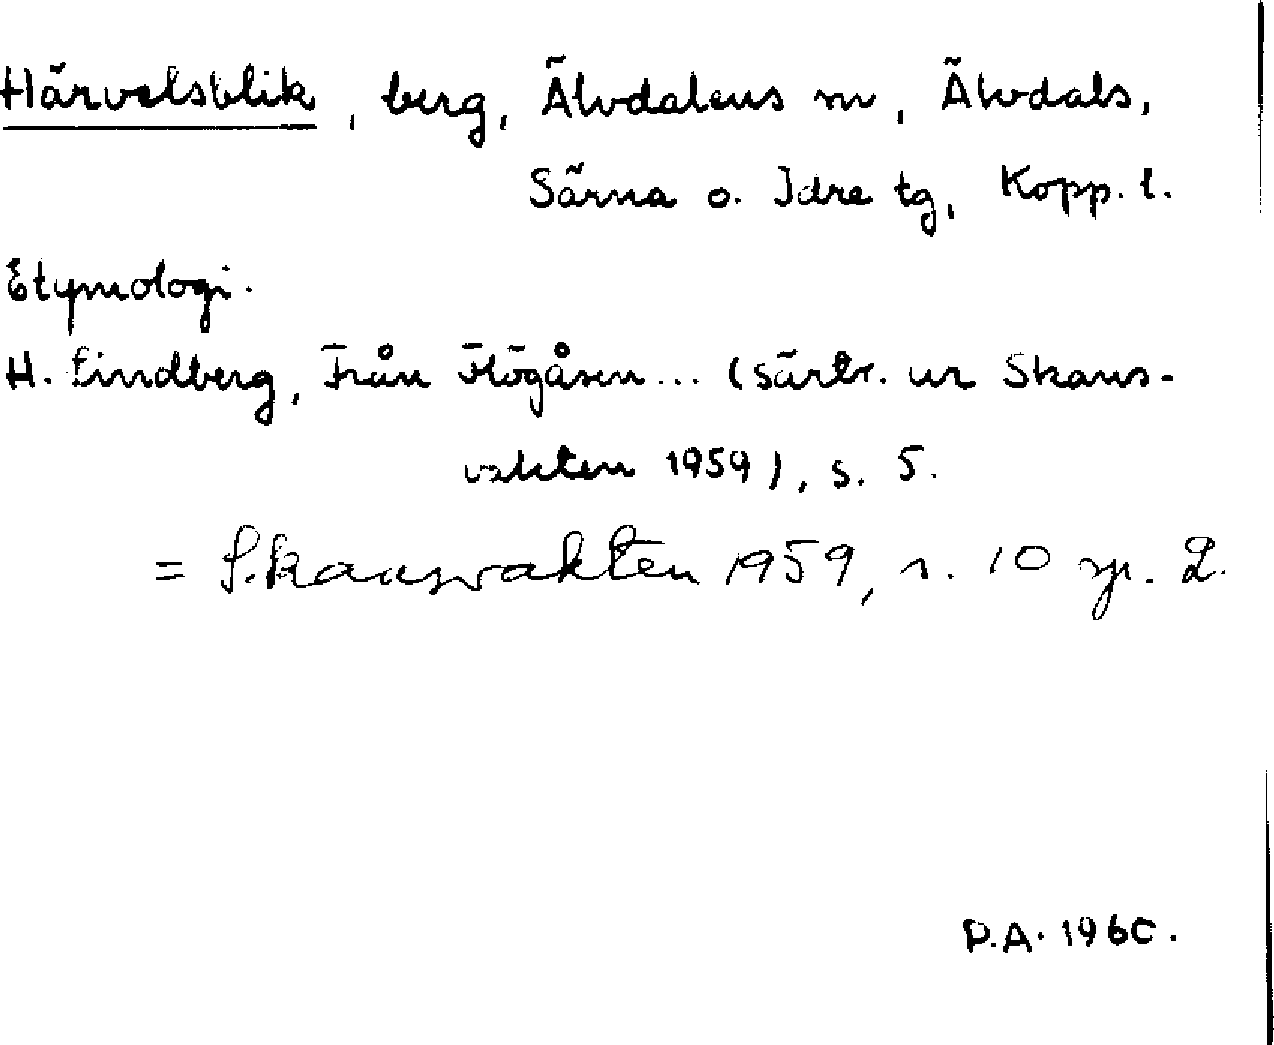 Härvelsblik, berg, Älvdalens sn, Älvdals,
Särna o. Idre tg, Kopp. l.
Etymologi.
H. Lindberg, Från Högåsen... (särtr. ur Skans-
vakten 1959), s. 5.
= Skansvakten 1959, s. 10 sp. 2.
D.A. 1960.